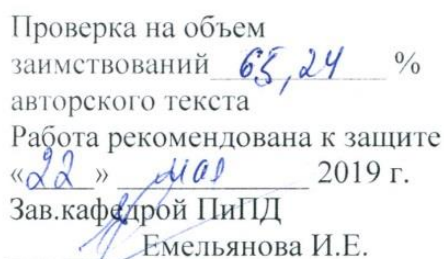 Проверка на объем
заимствований 65,24 %
авторского текста
Работа рекомендована к защите
«22» мая 2019 г.
Зав.кафедрой ПиПД
Емельянова И.Е.